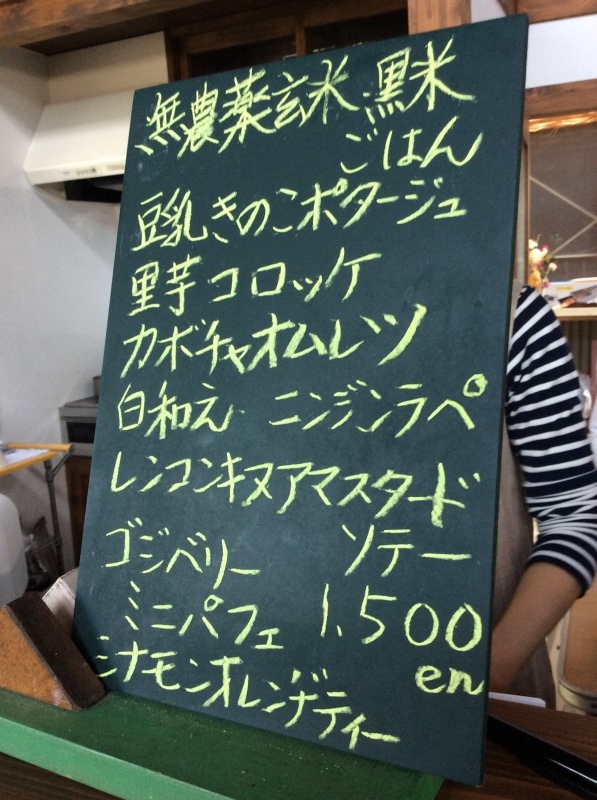 無農薬玄米.黒米
ごはん
豆乳きのこポタージュ
里芋コロッケ
カボチャオムレツ
白和え ニンジンラペ
レンコンキヌアマスタード
ソテー
ゴジベリー
ミニパフェ 1,500
en
シナモンオレンヂティー